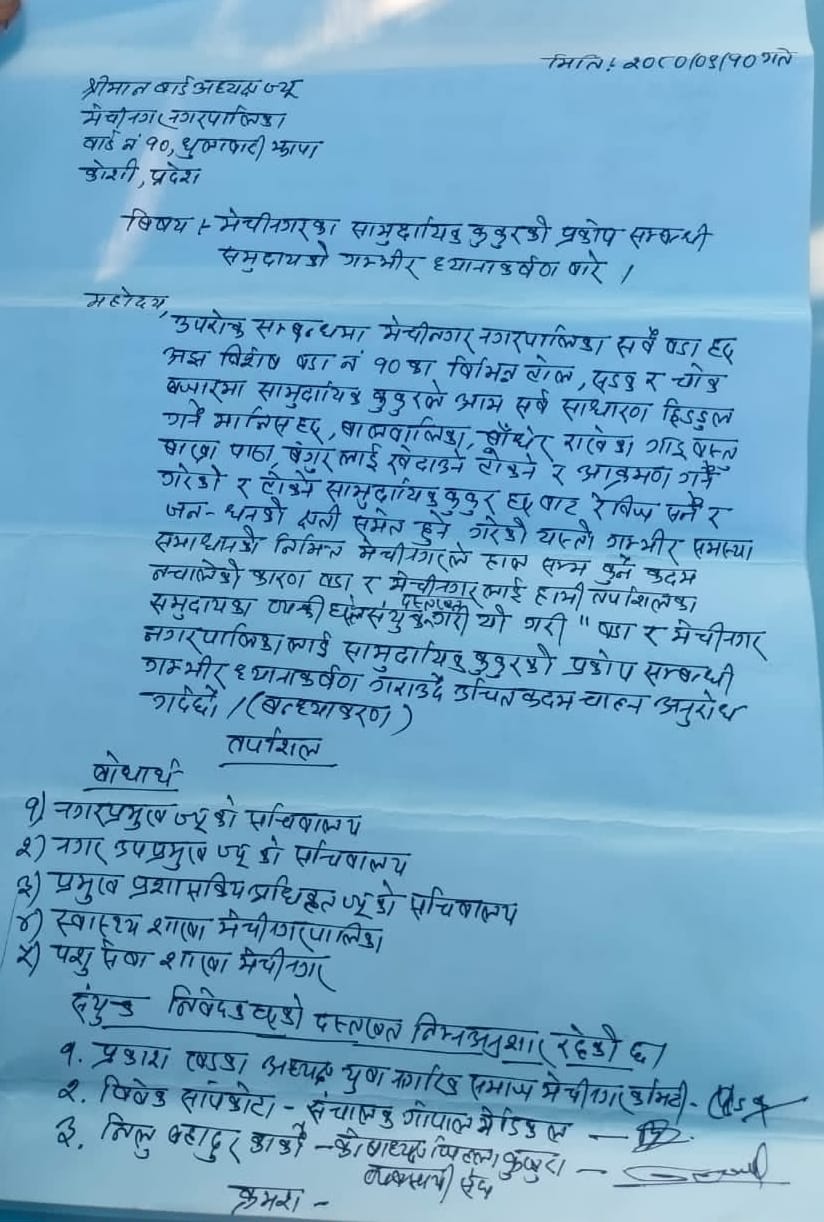 मिति: २०८०।०९।१० गते
श्रीमान वार्ड अध्यक्ष ज्यू
मेचीनगर नगरपालिका
वार्ड नं १०, धुलाबारी झापा
कोशी, प्रदेश
बिषय :- मेचीनगरका सामुदायिक कुकुरको प्रकोप सम्बन्धी
समुदायको गम्भीर ध्यानाकर्षण बारे ।
महोदय,
उपरोक्त सम्बन्धमा मेचीनगर नगरपालिका सबै वडा हरु
अझ विशेष वडा नं १० का विभिन्न टोल, सडक र चोक
बजारमा सामुदायिक कुकुरले आम सर्व साधारण हिडडुल
गर्ने मानिस हरु, बालबालिका, बाँधेर राखेका गाइ वस्तु
बाख्रा पाठा, बंगुर लाई खेदाउने टोक्ने र आक्रमण गर्ने
गरेको र टोक्ने सामुदायिक कुकुर हरु बाट रेबिज सर्ने र
जन-धनको क्षती समेत हुने गरेको यस्तो गम्भीर समस्या
समाधानको निमित्त मेचीनगरले हाल सम्म कुनै कदम
नचालेको कारण वडा र मेचीनगर लाई हामी तपशिलका
समुदायका व्यक्ती हरुले संयुक्त दस्तखत गरी यो गरी " वडा र मेचीनगर
नगरपालिका लाई सामुदायिक कुकुरको प्रकोप सम्बन्धी
गम्भीर ध्यानाकर्षण गराउदै उचित कदम चाल्न अनुरोध
गर्दछौ । (बन्ध्याकरण)
तपशिल
बोधार्थ
१) नगरप्रमुख ज्यू को सचिवालय
२) नगर उपप्रमुख ज्यू को सचिवालय
३) प्रमुख प्रशासकिय अधिकृत ज्यू को सचिवालय
४) स्वास्थ्य शाखा मेचीनगरपालिका
५) पशु सेवा शाखा मेचीनगर
संयुक्त निवेदक हरुको दस्तखत निम्न अनुशार रहेको छ।
१. प्रकाश खडका अध्यक्ष युवा नागरिक समाज मेचीनगर कमिटी -
२. विवेक सापकोटा - संचालक गोपाल मेडिकल -
३. निलु बहादुर कार्की - कोषाध्यक्ष जिल्ला कुखुरा -
व्यवसायी संघ
क्रमश -